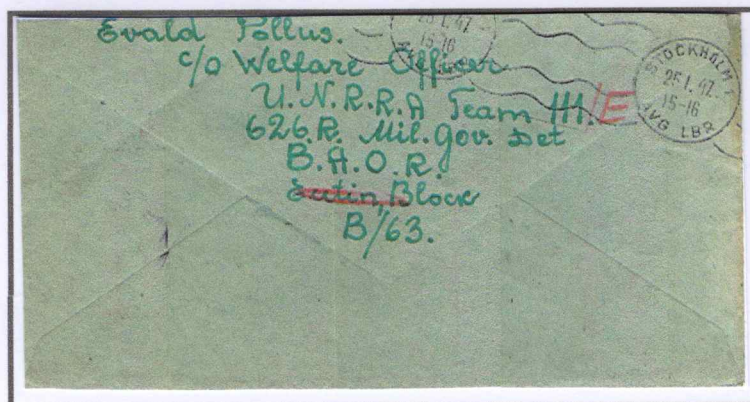 Evald Pollus.
c/o Welfare Officer
U.N.R.R.A Team 111. E
626.R. Mil.Gov. Det
B.A.O.R.
Eutin, Block
B/63.
25.1.47.
15-16
STOCKHOLM 1
25.1.47.
15-16
AVG LBR